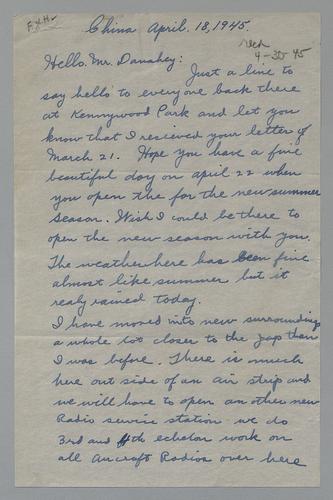 China April. 18, 1945.
Rech
4-30 45
Hello. Mr. Danahey:
Just a line to
say hello to everyone back there
at Kennywood Park and let you
know that I received your letter of
March 21. Hope you have a fine
beautiful day on april 22 when
you open the for the new summer
season. Wish I could be there to
open the new season with you.
The weather here has been fine
almost like summer but it
realy rained today.
I have moved into new surroundings
a whole lot closer to the Jap than
I was before. There is much
here out side of an air strip and
we will have to open an other new
Radio service station we do
3rd and 4th echelon work on
all Aircraft Radios over here